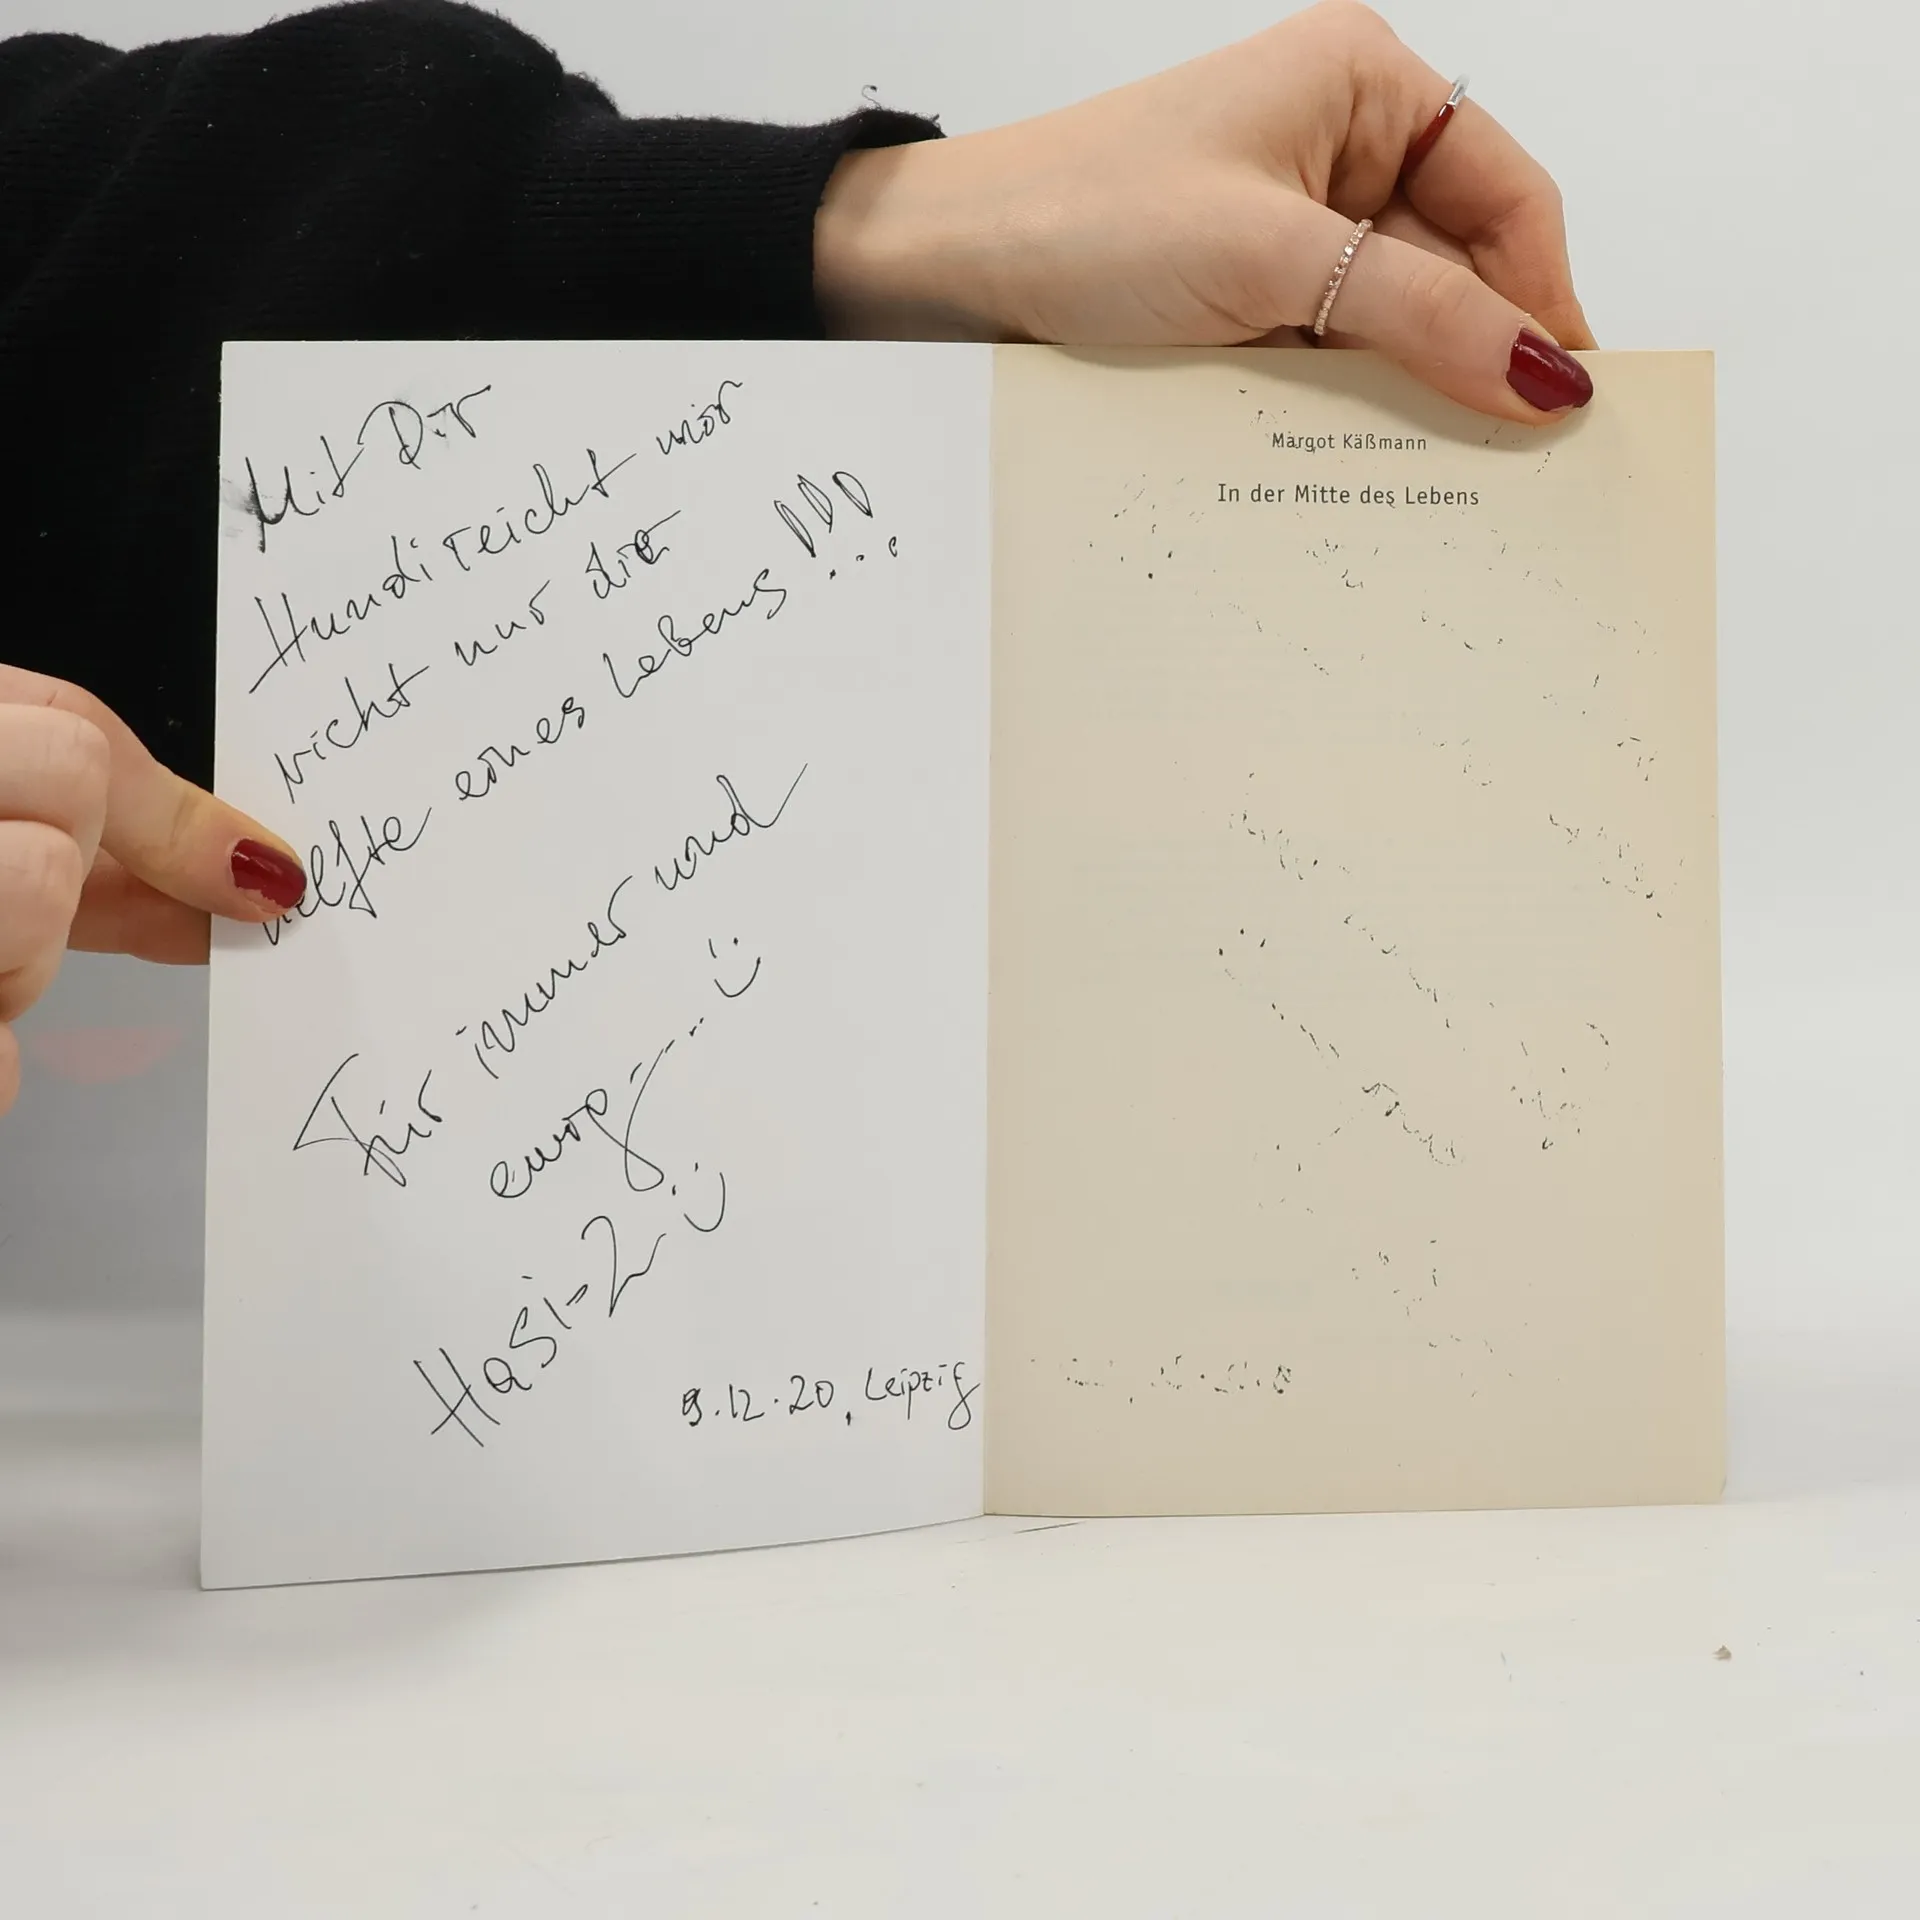 Mit Dir
Hundi reicht mir
nicht nur die
Helfte eines Lebens!!!
Für immer und
ewig... :)
Hasi-2 :)
9.12.20, Leipzig
Margot Käßmann
In der Mitte des Lebens